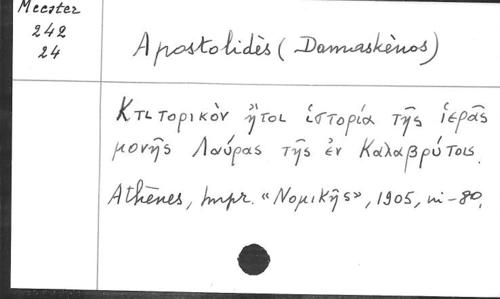 Meester
242
24
Apostolidès (Damaskènos)
Κτιτορικὸν ἤτοι ἱστορία τῆς ἱερᾶς
μονῆς Λαύρας τῆς ἐν Καλαβρύτοις.
Athènes, Impr. «Νομικῆς», 1905, in-8o.